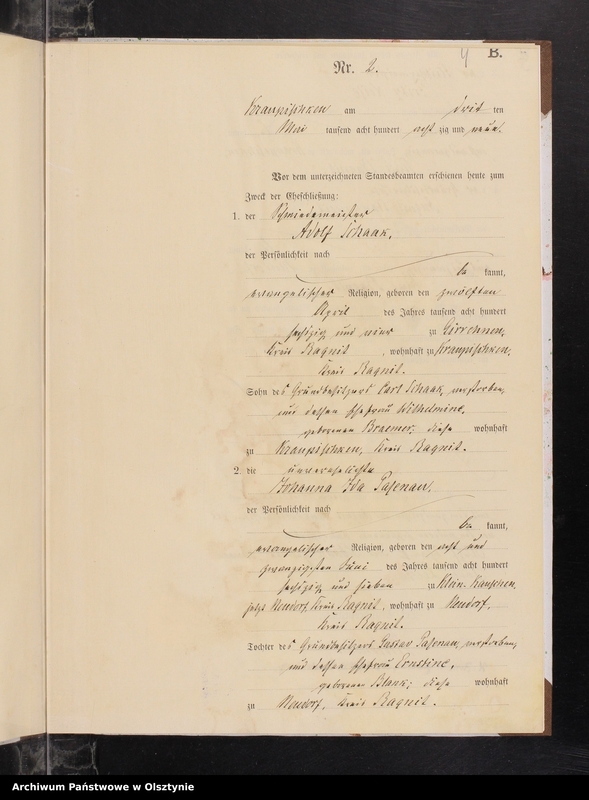 B.
Nr. 2.
Kraupischken am drit ten
Mai tausend acht hundert acht zig und neun.
Vor dem unterzeichneten Standesbeamten erschienen heute zum
Zweck der Eheschließung:
1. der Schmiedemeister
Adolf Schaak,
der Persönlichkeit nach
be kannt,
evangelischer Religion, geboren den zwölften
April des Jahres tausend acht hundert
sechszig und neun zu Girrehnen,
Kreis Ragnit, wohnhaft zu Kraupischken,
Kreis Ragnit.
Sohn des Grundbesitzers Carl Schaak, verstorben,
und dessen Ehefrau Wilhelmine,
geborenen Braemer, diese wohnhaft
zu Kraupischken, Kreis Ragnit.
2. die unverehelichte
Johanna Ida Pasenau,
der Persönlichkeit nach
be kannt,
evangelischer Religion, geboren den acht und
zwanzigsten Juni des Jahres tausend acht hundert
sechszig und sieben zu Klein-Kauschen,
jetzt Neudorf, Kreis Ragnit, wohnhaft zu Neudorf,
Kreis Ragnit.
Tochter des Grundbesitzers Gustav Pasenau, verstorben,
und dessen Ehefrau Ernstine,
geborenen Blank; diese wohnhaft
zu Neudorf, Kreis Ragnit.
Archiwum Państwowe w Olsztynie